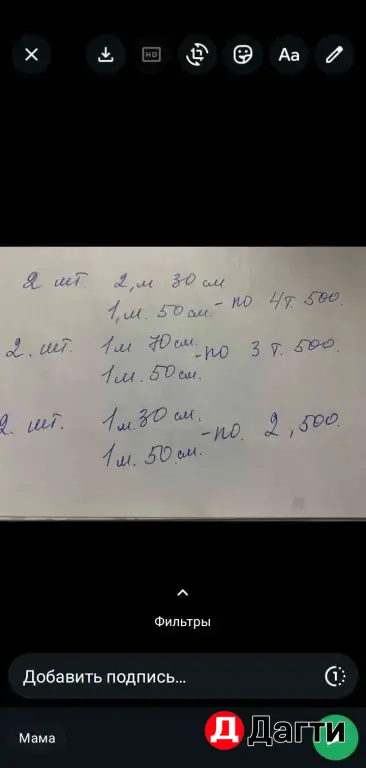 HD
Aa
2 шт. 2,м 30 см
1,м. 50 см. - по 4т. 500.
2. шт. 1м 70 см.
- по 3 т. 500.
1м. 50 см.
2. шт. 1м. 30 см.
- по. 2,500.
1м. 50 см.
Фильтры
Добавить подпись...
1
Мама
Д Дагти